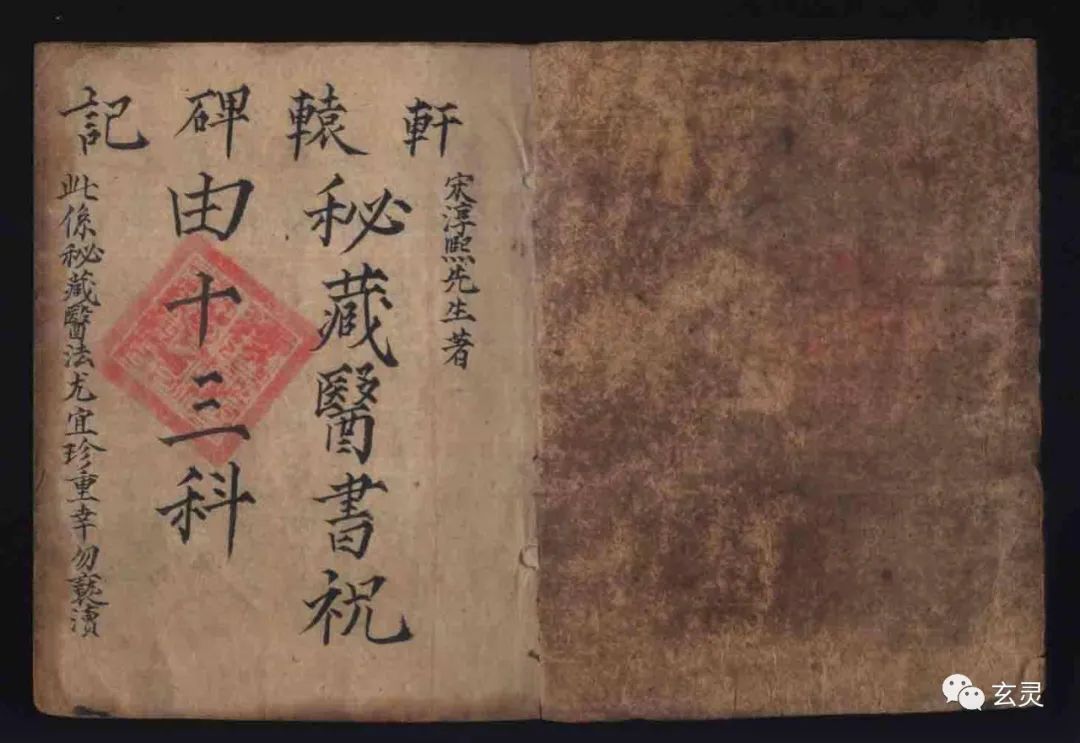 軒轅碑記
宋淳熙先生著
秘藏醫書祝
由十三科
此係秘藏醫法尤宜珍重幸勿褻瀆
玄灵